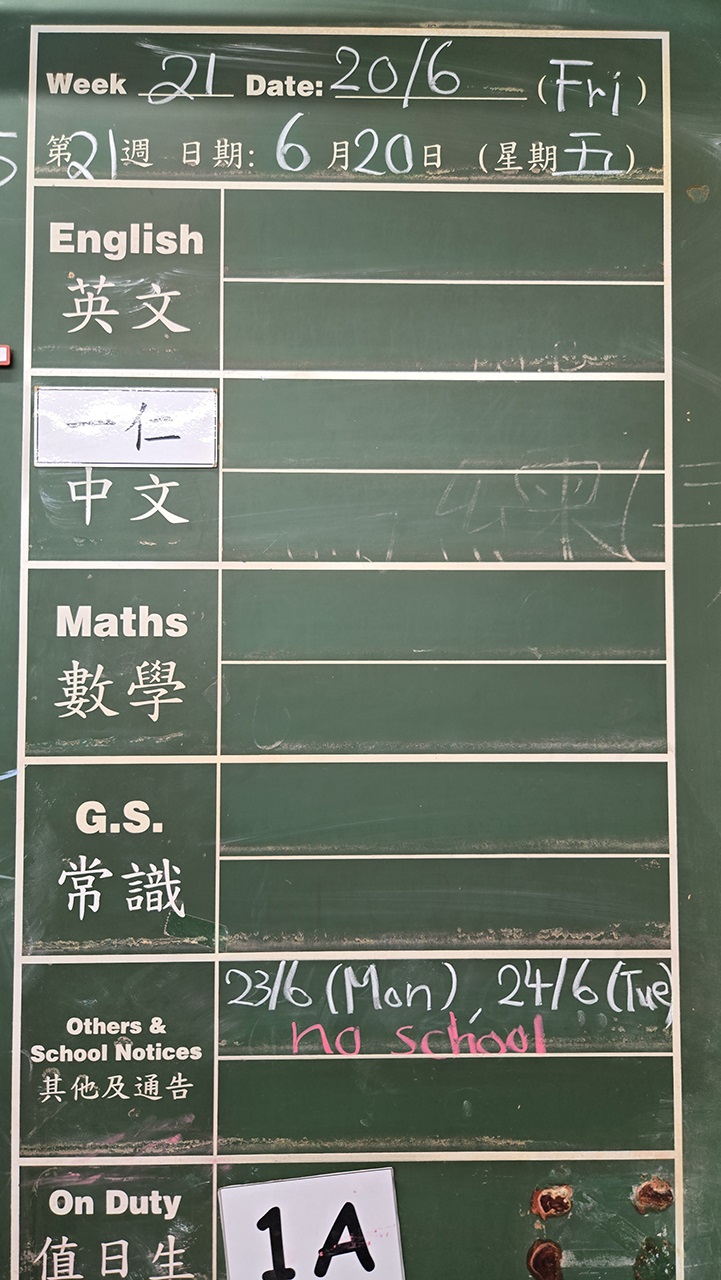 Week 21 Date: 20/6 (Fri)
第21週 日期: 6月20日 (星期五)
English
英文
一仁
中文
Maths
數學
G.S.
常識
23/6 (Mon), 24/6 (Tue)
no school
Others &
School Notices
其他及通告
On Duty
值日生
1A